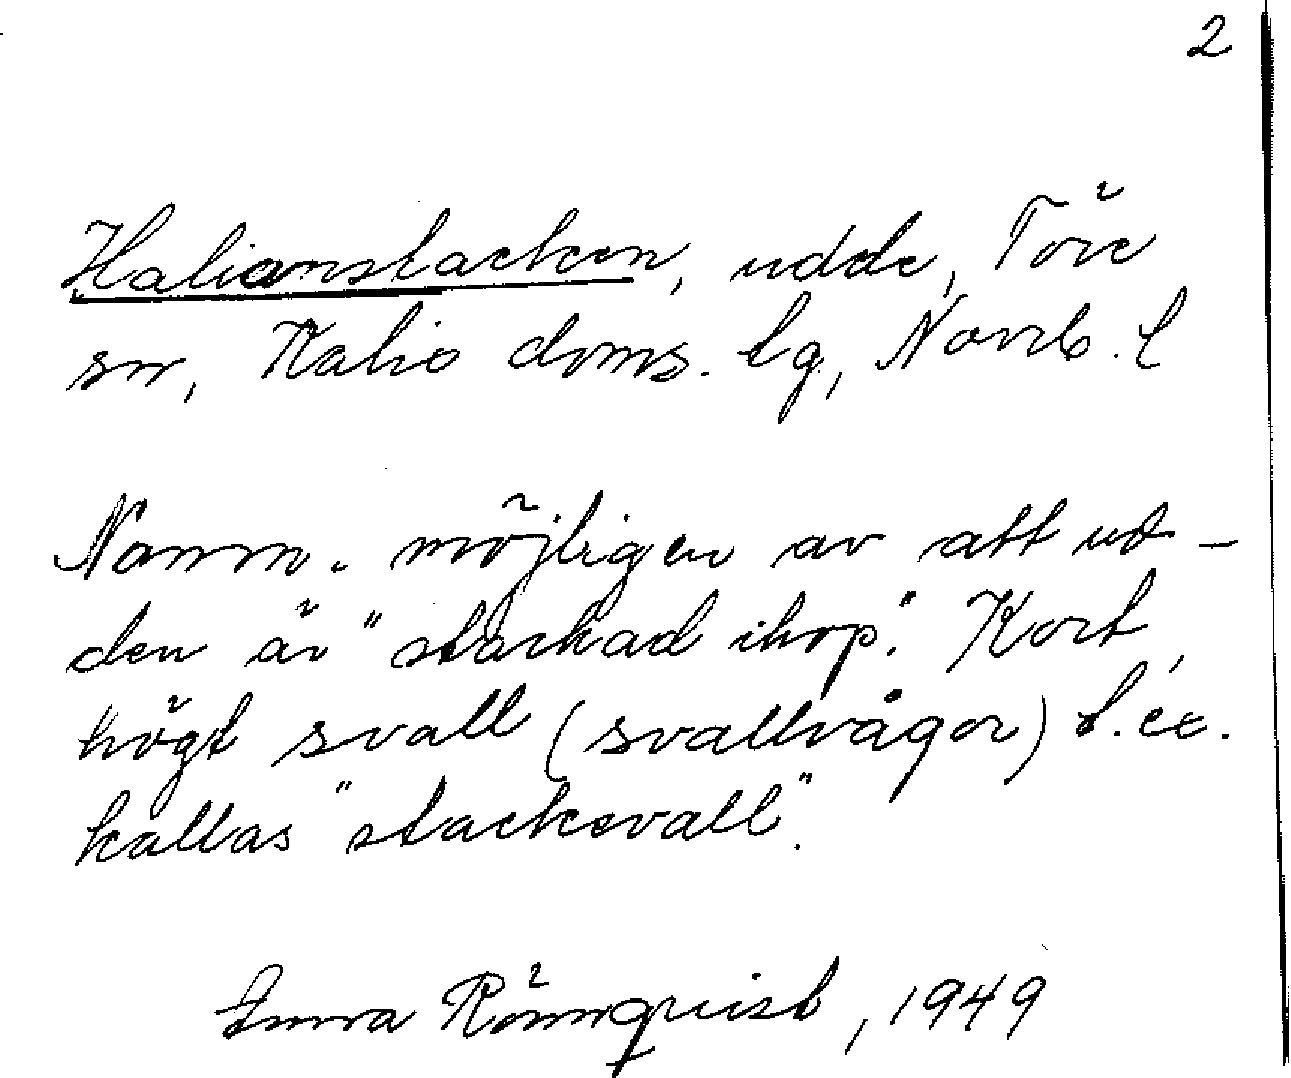 2
Halianstacken, udde, Töre
sn, Kalix doms. lg, Norrb. l
Namn. möjligen av att ud-
den är "stackad ihop". Kort,
högt svall (svallvågor) t.ex.
kallas "stacksvall".
Rönnquist, 1949